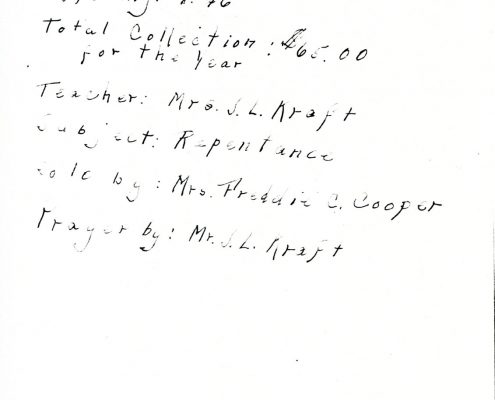 .76
Total Collection : $65.00
for the Year
Teacher: Mrs. J. L. Kraft
Subject: Repentance
Solo by : Mrs. Freddie C. Cooper
Prayer by: Mr. J. L. Kraft